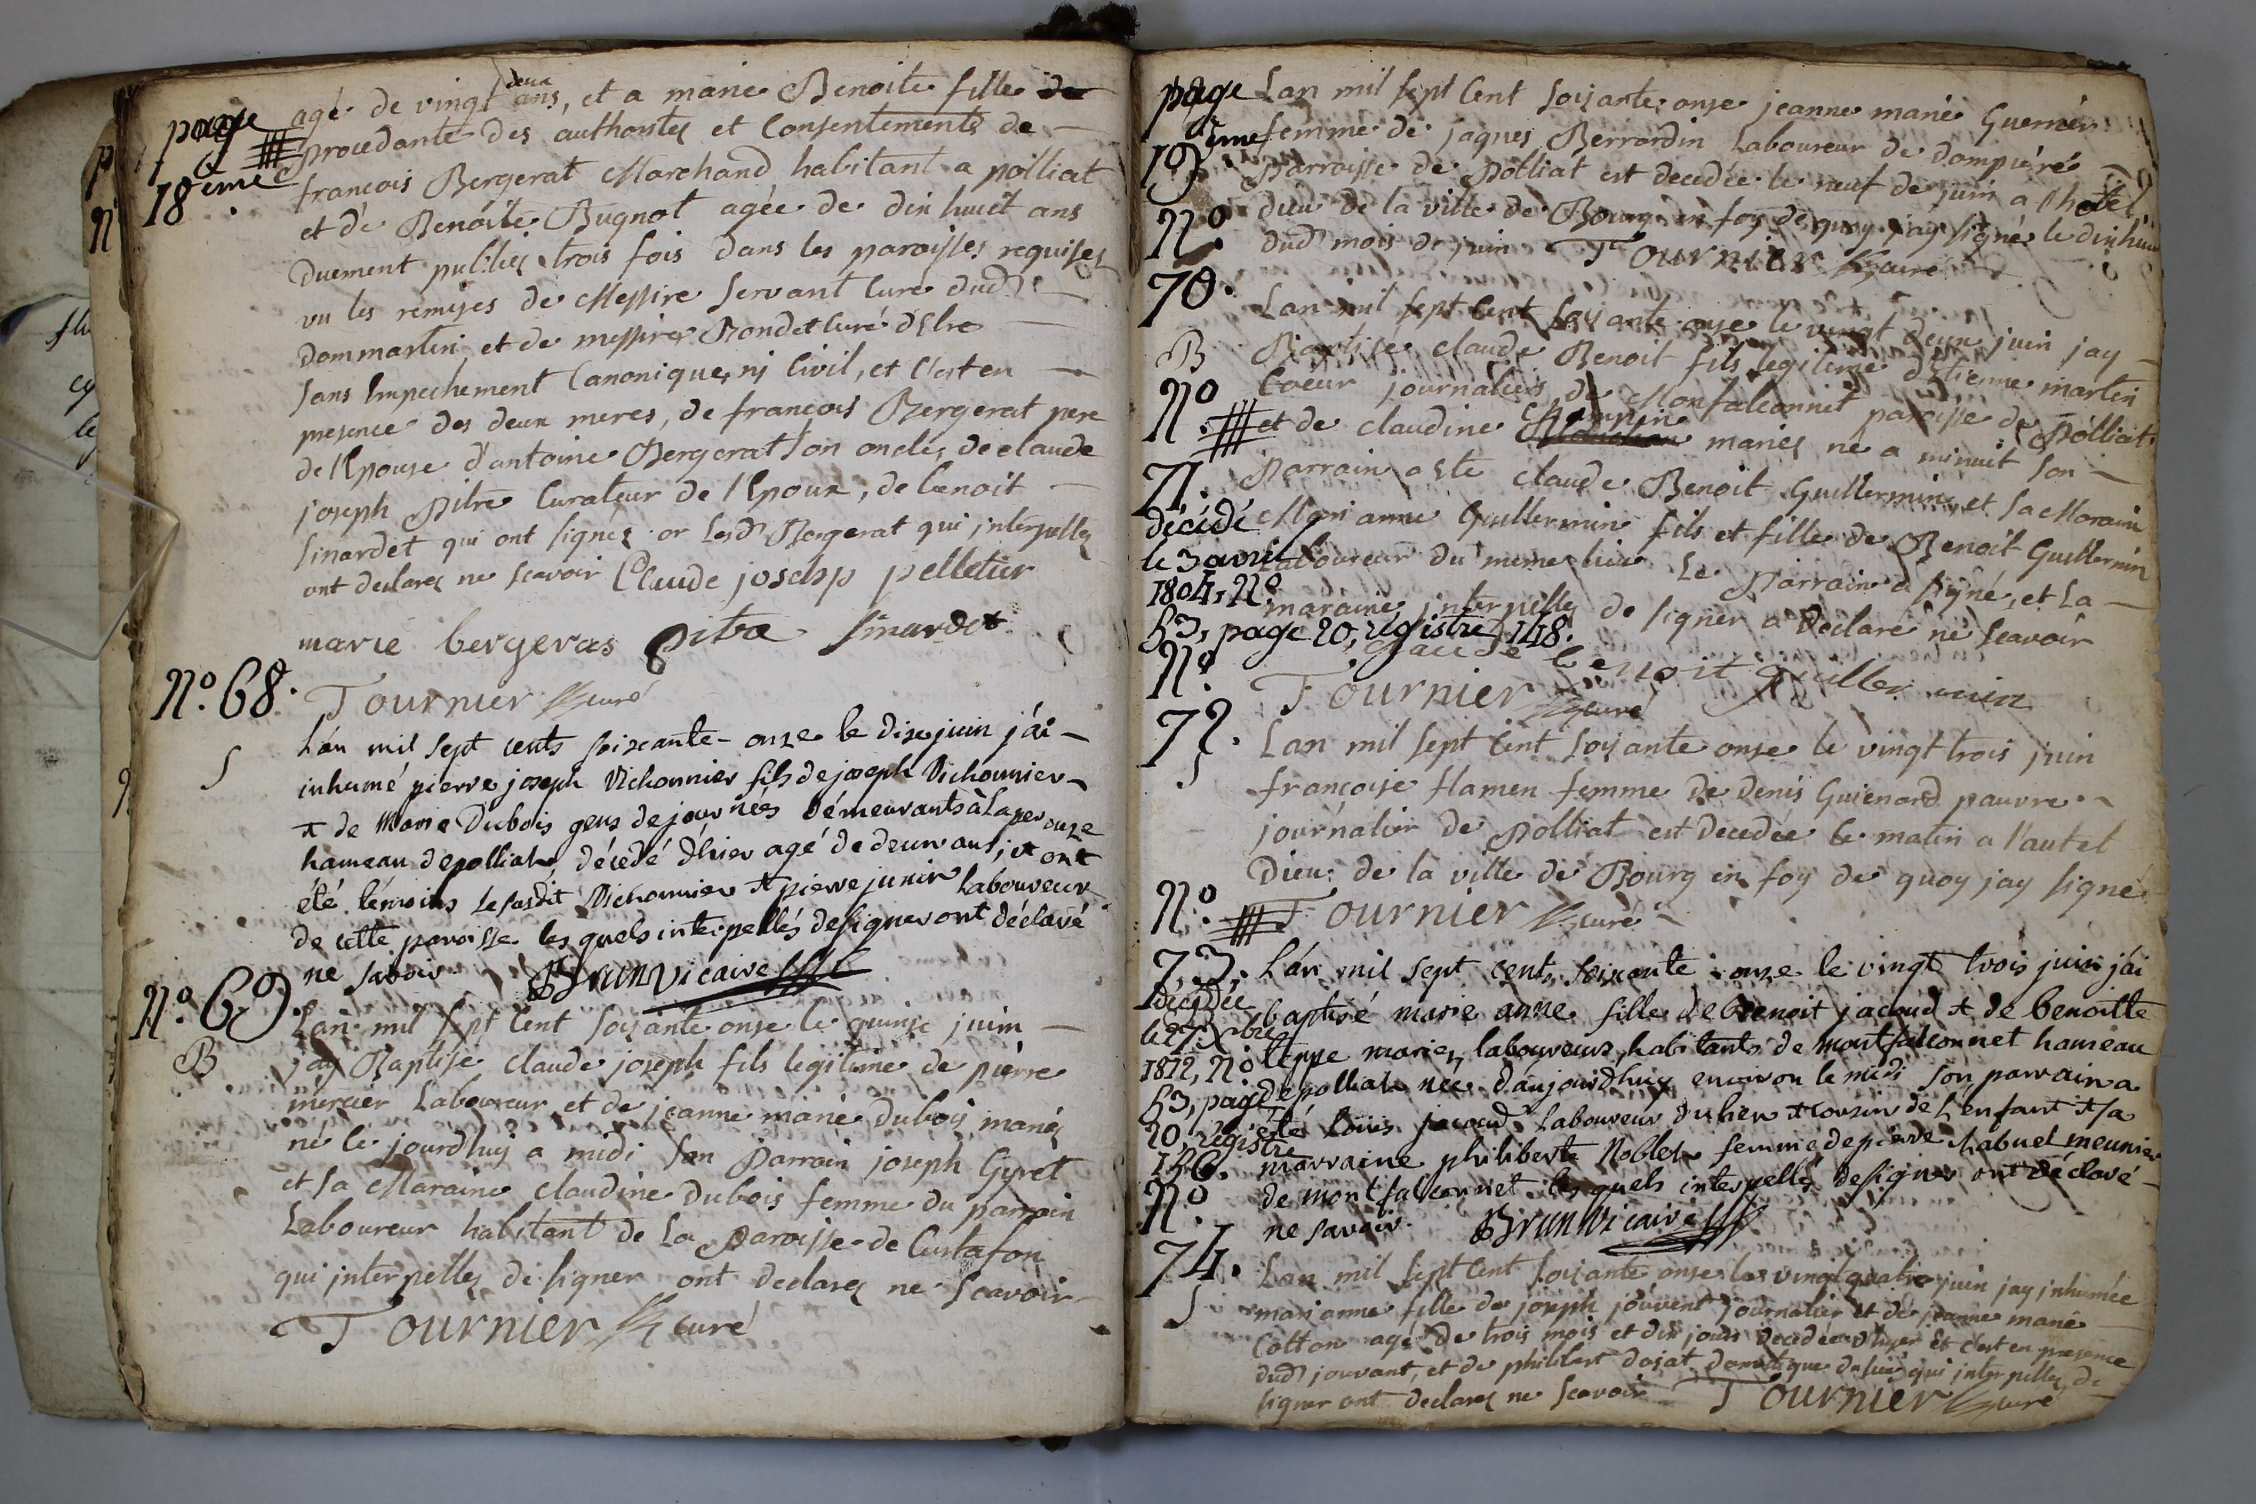 page
18ème
agé de vingt deux ans, et a marie Benoite fille de
procedante des authorités et Consentements de
francois Bergerat Marchand habitant a polliat
et de Benoite Bugnot agée de dix huict ans
Duement publiez trois fois dans les paroisses requises
vu les remises de Messire Servant Curé dud
dommartin et de messire Rondet Curé d'Etre
sans Empechement Canonique, nj Civil, et C'est en
presence des deux meres, de francois Bergerat pere
de l'Epouse d'antoine Bergerat son oncle, de claude
joseph Pitre Curateur de l'Epoux, de benoit
Sinardet qui ont signez or Lesd Bergerat qui jnterpellez
ont declarez ne scavoir Claude joseph pelletier
marie bergeras Sinardet
Tournier curé
N.º 68.
S
L'an mil sept cents soixante-onze le dix juin j'ai
inhumé pierre joseph Vichonnier fils de joseph Vichonnier
& de Marie Dubois gens de journées demeurants à la perouze
hameau de polliat décédé d'hier agé de deux ans, et ont
été témoins le susdit Vichonnier & pierre junin laboureur
de cette paroisse lesquels interpellés de signer ont déclaré
ne savoir Brun vicaire
N.º 69.
B
Lan mil sept Cent soixante onse le quinse juin
jay Baptisé claude joseph fils legitime de pierre
mercier Laboureur et de jeanne marie dubois mariez
né le jourdhuy a midi son Parrain joseph Gyret
et sa Maraine claudine dubois femme du parrain
Laboureur habitant de La Paroisse de Curtafon
qui jnterpellez de signer ont declarez ne scavoir
Tournier curé
page
19ème
N.º
70.
Lan mil sept Cent soixante onse jeanne marie Guerrier
femme de jaques Berrardin Laboureur de dompierre
Parroisse de Polliat est decedée le neuf de juin a l'hotel
dieu de la ville de Bourg en foy de quoy j'ay signé le dixhuit
dud mois de juin Tournier curé
B
N.º
71.
décédé
le 3 avril
1804, N.º
53, page 20, régistre 148.
Lan mil sept Cent soixante onse le vingt deux juin jay
Baptisé claude Benoit fils legitime d'Etienne martin
Coeur journalier de Monfalconnet paroisse de Polliat
et de claudine mariez né a minuit son
Parrain a ete claude Benoit Guillermin et sa Maraine
Marianne Guillermin fils et fille de Benoit Guillermin
Laboureur du meme lieu Le Parrain a signé, et La
maraine jnterpellez de signer a declaré ne scavoir
Claude benoit guillermin
Tournier curé
N.º
72.
S
Lan mil sept Cent soixante onse le vingt trois juin
françoise flamen femme de denis Guienard pauvre
journalier de Polliat est decedée le matin a l'autel
Dieu de la ville de Bourg en foy de quoy jay signé
Tournier curé
N.º
73.
décédée
le 27 Xbre
1812, N.º
53, page
20, régistre
156.
L'an mil sept cents soixante onze le vingt trois juin j'ai
baptisé marie anne fille de benoit jacoud & de benoitte
teppe mariez laboureurs habitants de montfalconnet hameau
de polliat née d'aujourdhuy environ le midi son parrain a
été Louis jacoud laboureur du lieu & cousin de l'enfant & sa
marraine philiberte Noblet femme de pierre chabuel meunier
de montfalconnet lesquels interpellés de signer ont déclaré
ne savoir. Brun vicaire
N.º
74.
S
Lan mil sept Cent soixante onse le vingt quatre juin jay jnhumée
marianne fille de joseph jouvent journalier et de jeanne marie
Cotton agé de trois mois et dix jours decedée d'hyer et c'est en presence
dud jouvant, et de philibert dojat domestique qui jnterpellez de
signer ont declarez ne scavoir Tournier curé